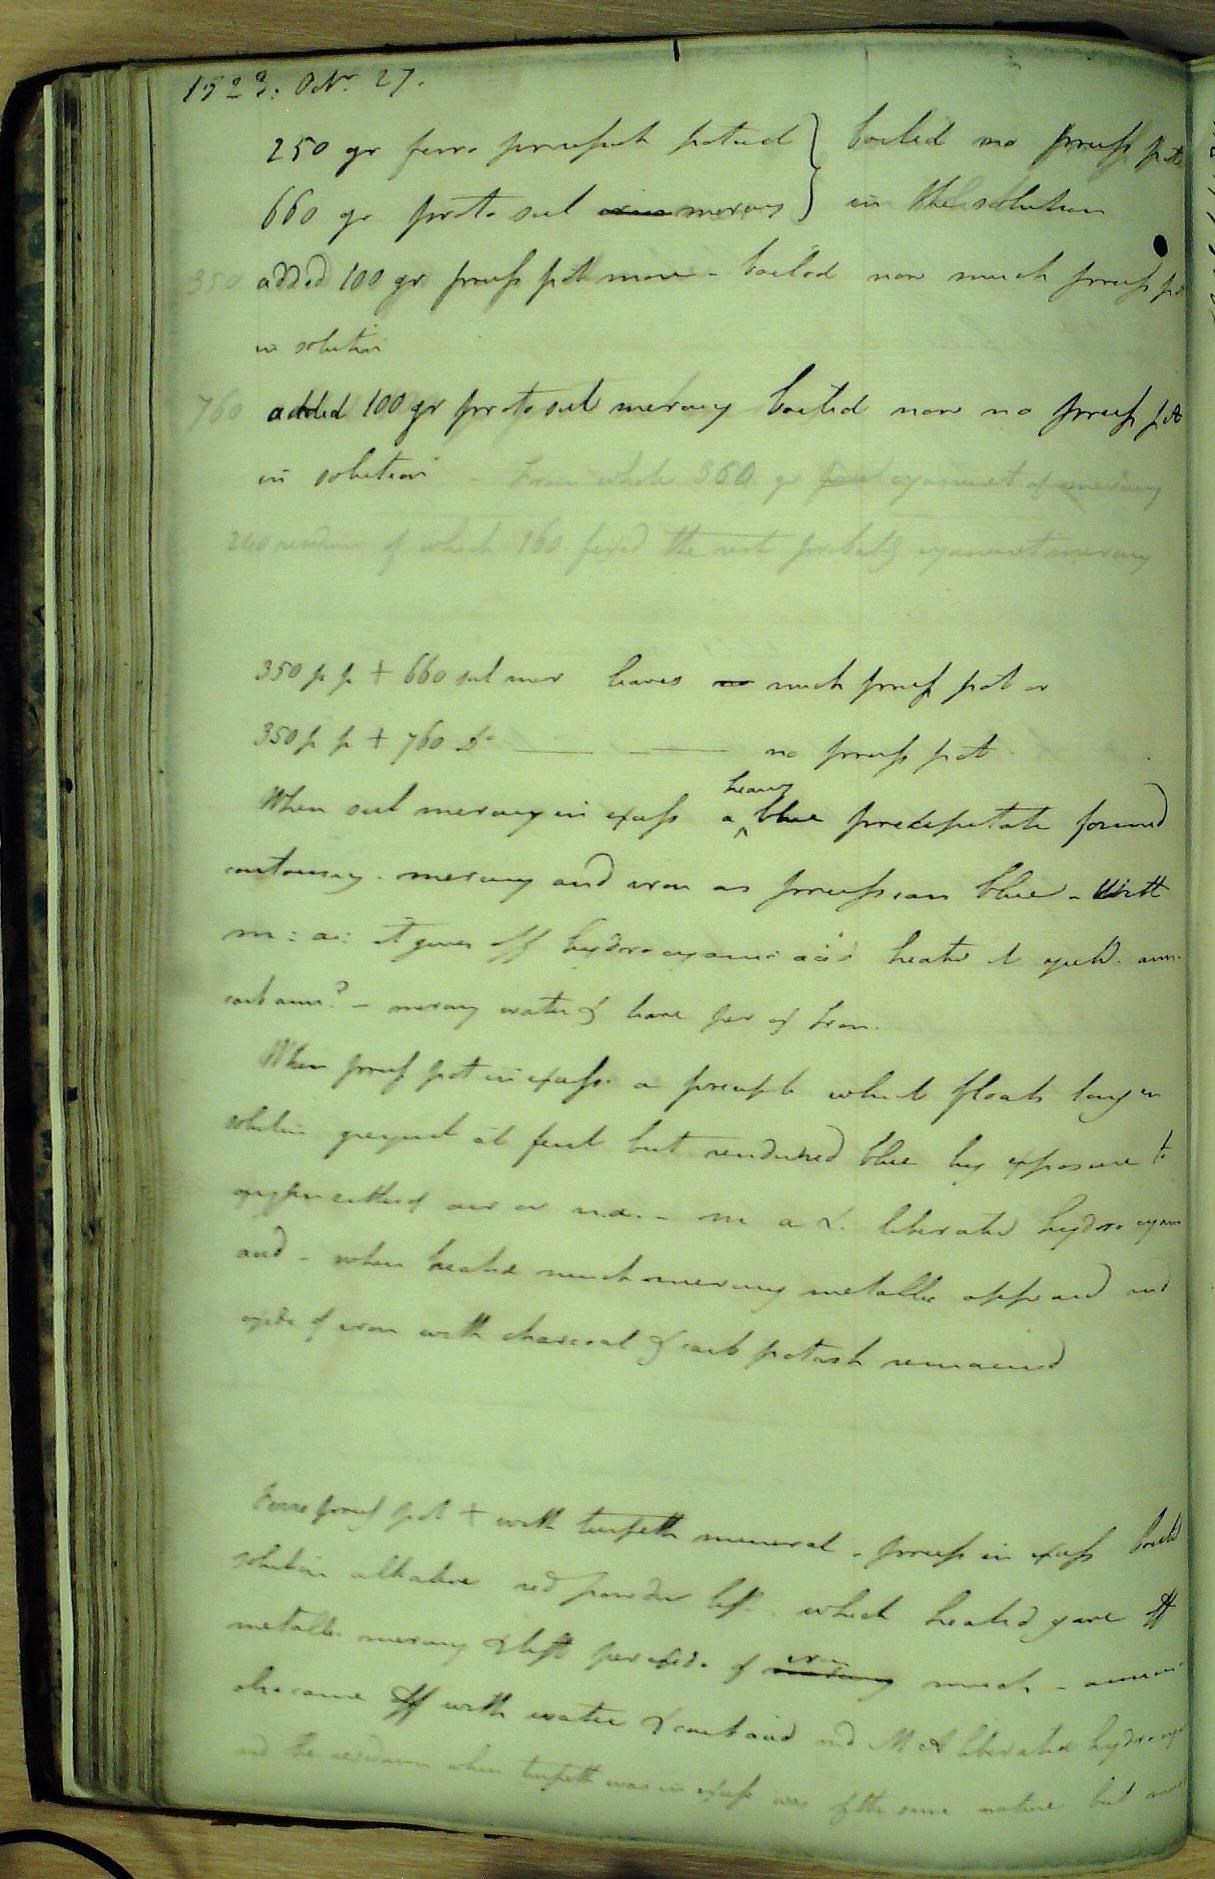 1823. Octr. 27.
250 gr ferro prussiate potash } boiled no pruss pot
660 gr proto sul mercury } in the solution
350 added 100 gr pruss pot more - boiled now much pruss pot
in solution
760 added 100 gr proto sul mercury boiled now no pruss pot
in solution - From whole 360 gr cyanuret of mercury
240 residuum of which 160 fixed the rest probably cyanuret mercury
350 p p + 660 sul mer leaves no much pruss pot or
350 p p + 760 Do — — no pruss pot
When sul mercury in excess a heavy blue precipitate formed
containing mercury and iron as prussian blue - With
m: a: it gives off hydrocyanic acid heated it yield amm
carb amm? - mercury water & leave per ox Iron.
When pruss pot in excess a precip which floats long in
solution greyish at first but rendered blue by exposure to
oxygen either of air or n.a. - m a &. liberated hydrocyan
acid - when heated much mercury metallic appeared and
oxide of iron with charcoal & carb potash remained
Ferro pruss pot + with turpeth mineral - pruss in excess boiled
solution alkaline red powder left which heated gave off
metallic mercury & left peroxide of mercury iron much - ammon
also came off with water & carb acid and M A liberated hydrocy
and the residuum when turpeth was in excess was of the same nature but